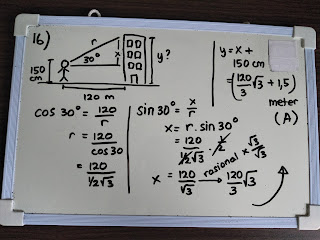 16)
r
30°
x
y?
150
cm
120 m
y = x +
150 cm
= (120/3 √3 + 1,5)
meter
(A)
cos 30° = 120/r
r = 120/cos 30
= 120/½√3
sin 30° = x/r
x = r . sin 30°
= 120/½√3 . ½
x = 120/√3 rasional × √3/√3 → 120/3 √3